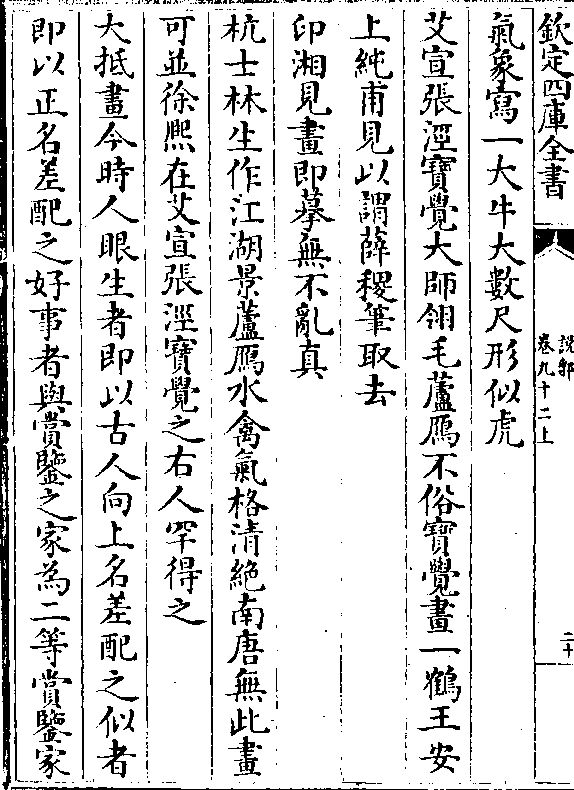 欽定四庫全書
說郛
卷九十二上
二十
氣象寫一大牛大數尺形似虎
艾宣張涇寶覺大師翎毛蘆鴈不俗寶覺畫一鶴王安
上純甫見以謂薛稷筆取去
印湘見畫即摹無不亂真
杭士林生作江湖景蘆鴈水禽氣格清絶南唐無此畫
可並徐熙在艾宣張涇寶覺之右人罕得之
大抵畫今時人眼生者即以古人向上名差配之似者
即以正名差配之好事者與賞鑒之家為二等賞鑒家